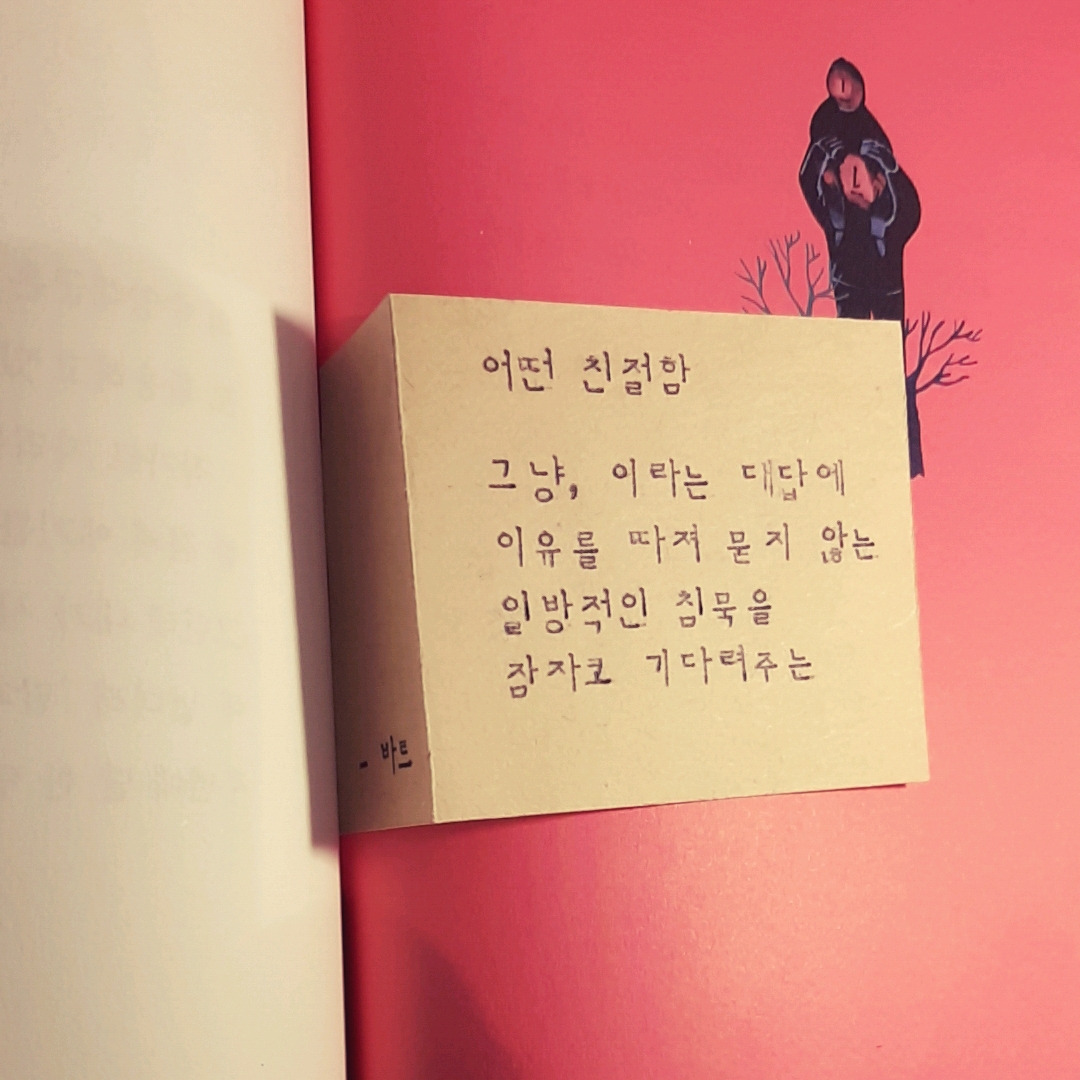 어떤 친절함
그냥, 이라는 대답에
이유를 따져 묻지 않는
일방적인 침묵을
잠자코 기다려주는
- 바트